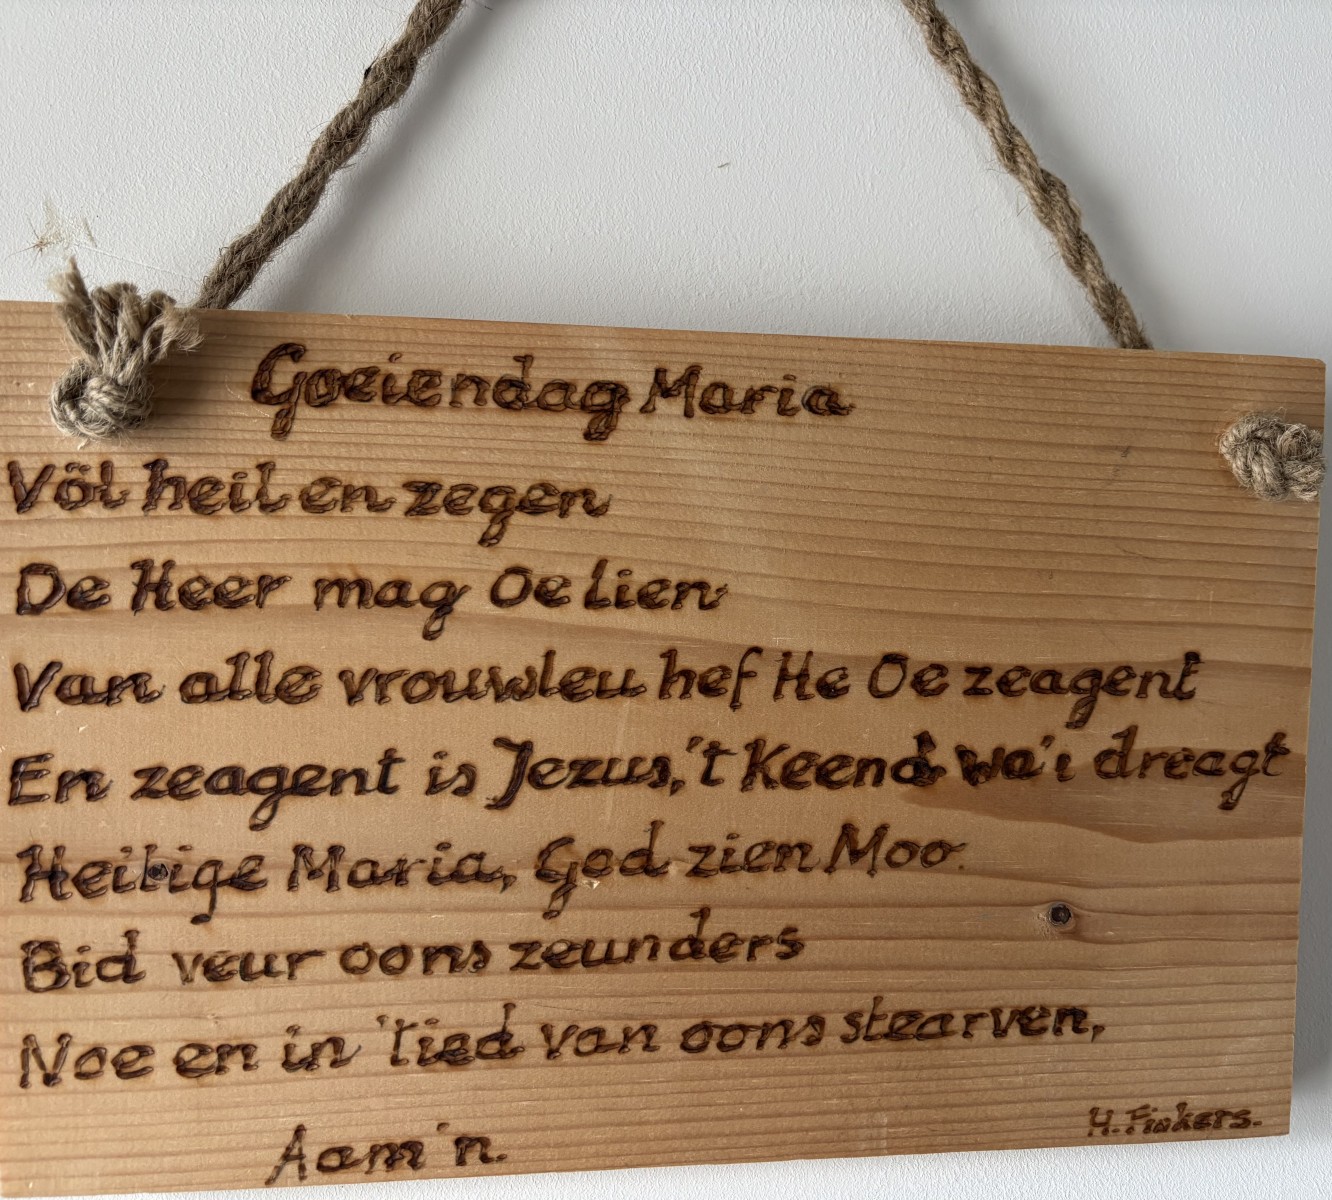 Goeiendag Maria
Völ heil en zegen
De Heer mag Oe lien
Van alle vrouwleu hef He Oe zeagent
En zeagent is Jezus, 't Keend wa'i dreagt
Heilige Maria, God zien Moo.
Bid veur oons zeunders
Noe en in 'Tied van oons stearven,
Aam'n.
H. Finkers.